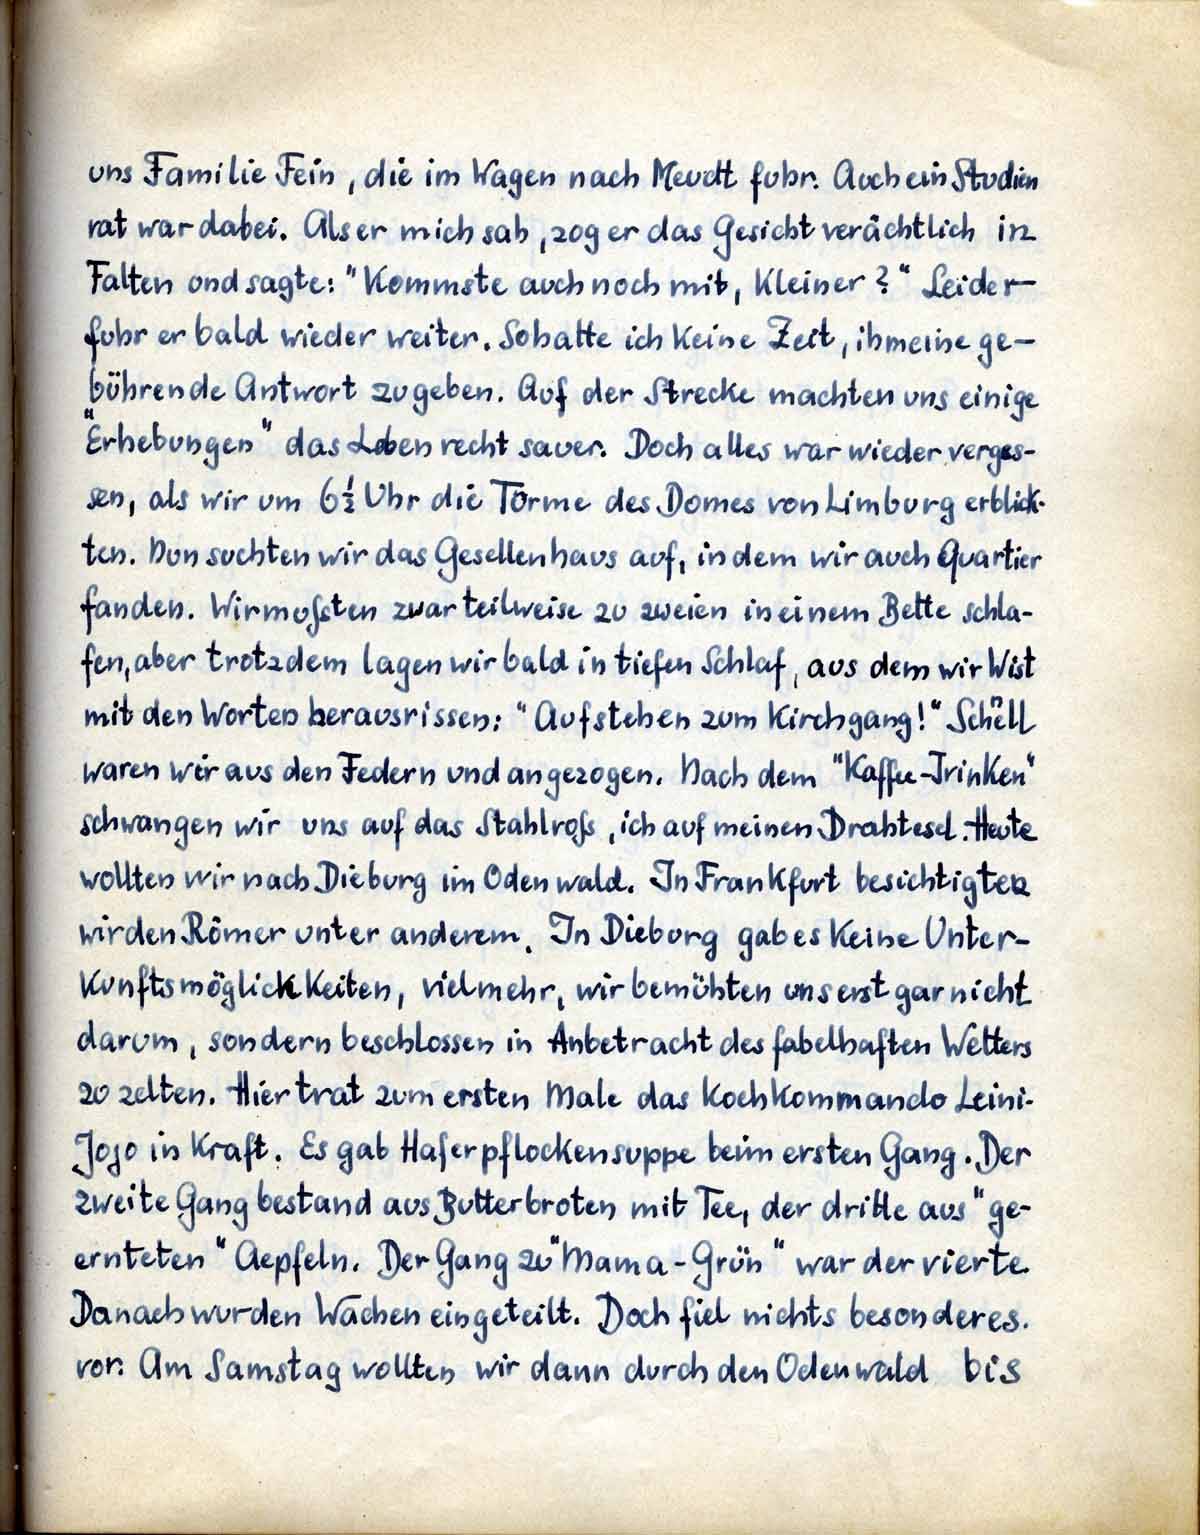 uns Familie Fein, die im Wagen nach Meudt fuhr. Auch ein Studien
rat war dabei. Als er mich sah, zog er das Gesicht verächtlich in
Falten und sagte: "Kommste auch noch mit, Kleiner?" Leider
fuhr er bald wieder weiter. So hatte ich keine Zeit, ihm eine ge-
bührende Antwort zu geben. Auf der Strecke machten uns einige
"Erhebungen" das Leben recht sauer. Doch alles war wieder verges-
sen, als wir um 6½ Uhr die Türme des Domes von Limburg erblick-
ten. Nun suchten wir das Gesellenhaus auf, in dem wir auch Quartier
fanden. Wir mußten zwar teilweise zu zweien in einem Bette schla-
fen, aber trotzdem lagen wir bald in tiefen Schlaf, aus dem wir Wist
mit den Worten herausrissen: "Aufstehen zum Kirchgang!" Schnell
waren wir aus den Federn und angezogen. Nach dem "Kaffee-Trinken"
schwangen wir uns auf das Stahlroß, ich auf meinen Drahtesel. Heute
wollten wir nach Dieburg im Odenwald. In Frankfurt besichtigten
wir den Römer unter anderem. In Dieburg gab es keine Unter-
kunftsmöglichkeiten, vielmehr, wir bemühten uns erst gar nicht
darum, sondern beschlossen in Anbetracht des fabelhaften Wetters
zu zelten. Hier trat zum ersten Male das Kochkommando Leini-
Jojo in Kraft. Es gab Haferpflockensuppe beim ersten Gang. Der
zweite Gang bestand aus Butterbroten mit Tee, der dritte aus "ge-
ernteten" Aepfeln. Der Gang zu "Mama-Grün" war der vierte.
Danach wurden Wachen eingeteilt. Doch fiel nichts besonderes.
vor. Am Samstag wollten wir dann durch den Odenwald bis